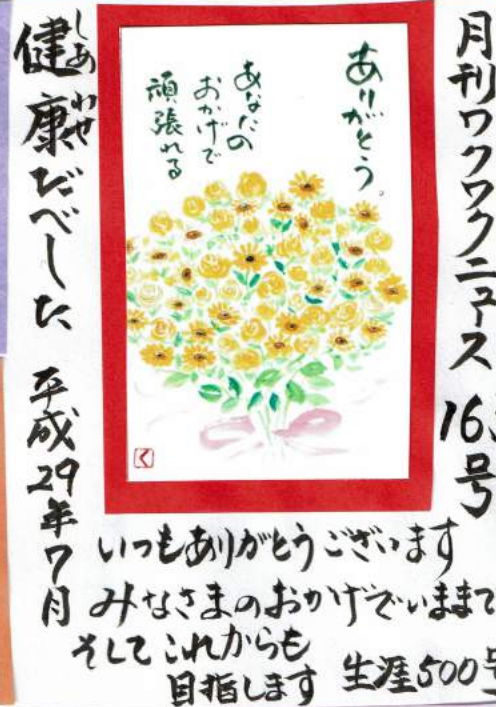 月刊ワクワクニュース
号
ありがとう。
あなたの
おかげで
頑張れる
く
しあわせ
健康だべした
平成29年7月
いつもありがとうございます
みなさまのおかげでいままで
そして これからも
目指します 生涯500号